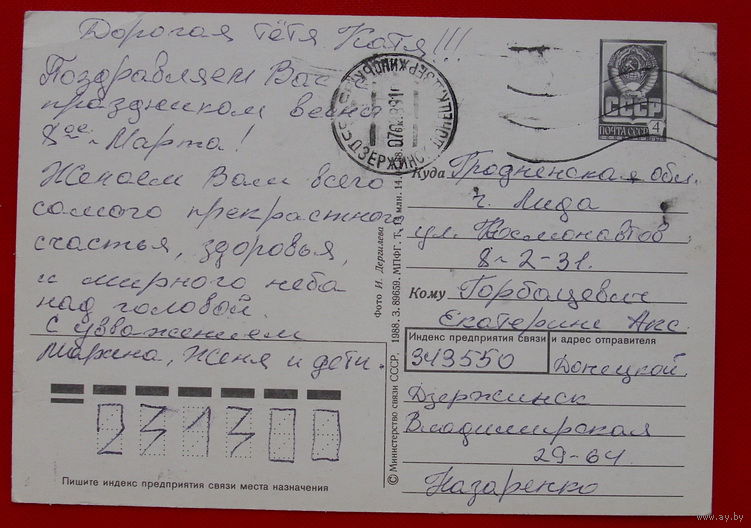 Дорогая тётя Катя!!!
Поздравляем Вас
праздником весны
8ое Марта!
Желаем Вам всего
самого прекрасного
счастья, здоровья,
и мирного неба
над головой.
С уважением
Марина, Женя и дети.
231300
Пишите индекс предприятия связи места назначения
© Министерство связи СССР. 1988. З. 89659. МПФГ. Т. 14.
Фото И. Дергилева
СССР
ПОЧТА СССР 4
ДЗЕРЖИНСК
Куда Гродненская обл.
г. Лида
ул. Космонавтов
8-2-31.
Кому Горбацевич
Екатерине Акс.
Индекс предприятия связи и адрес отправителя
343550 Донецкой
Дзержинск
Владимирская
29-64
Назаренко
www.ay.by